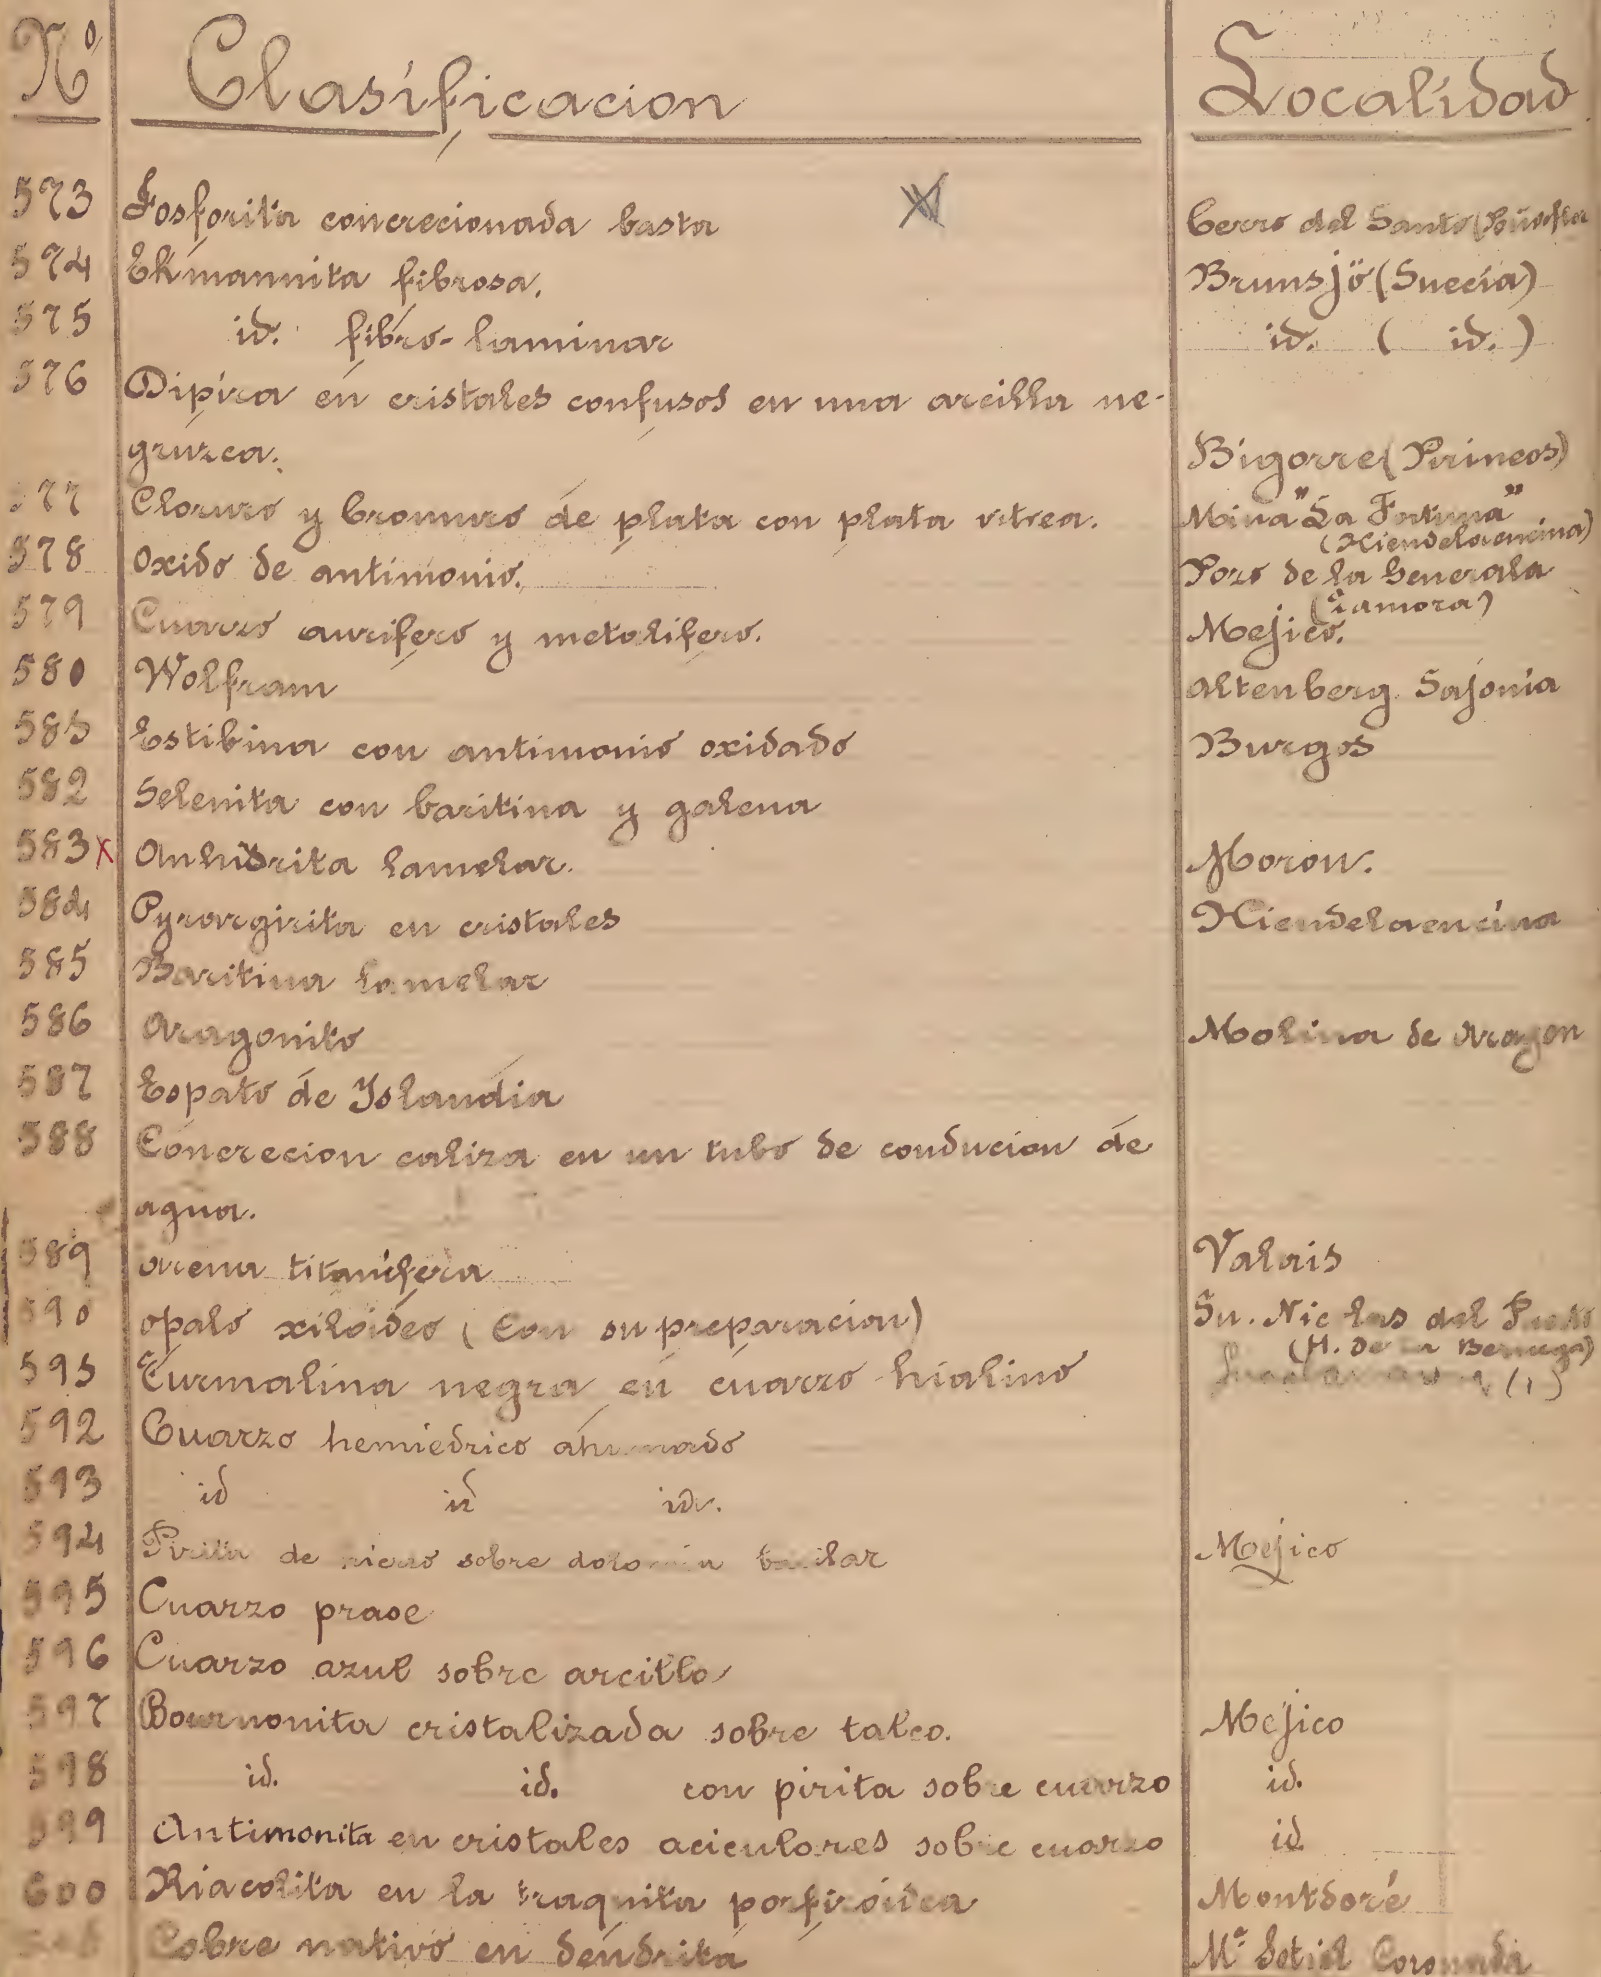 Nº Clasificacion Localidad
573 Fosforita concrecionada basta Cerro del Santo
574 Ekmannita fibrosa. Brunsjö (Suecia)
575 id. fibro-laminar id. ( id. )
576 Dipira en cristales confusos en una arcilla ne-
gruzca. Bigorre (Pirineos)
577 Cloruro y bromuro de plata con plata vitrea. Mina "La Fortuna"
(Hiendelaencina)
578 Oxido de antimonio. Pozo de la Generala
(Zamora)
579 Cuarzo aurifero y metalifero. Mejico.
580 Wolfram Altenberg Sajonia
581 Estibina con antimonio oxidado Burgos
582 Selenita con baritina y galena
583 x Anhidrita lamelar. Moron.
584 Pyrargirita en cristales Hiendelaencina
585 Baritina lamelar
586 Aragonito Molina de Aragon
587 Espato de Islandia
588 Concrecion caliza en un tubo de conducion de
agua.
589 Arena titanifera Valais
590 Opalo xiloideo (Con su preparacion) Sn. Nicolas del Puerto
(H. de la
591 Turmalina negra en cuarzo hialino (1)
592 Cuarzo hemiedrico ahumado
593 id id id.
594 Pirita de hierro sobre dolomia bacilar Mejico
595 Cuarzo prase
596 Cuarzo azul sobre arcilla
597 Bournonita cristalizada sobre talco. Mejico
598 id. id. con pirita sobre cuarzo id.
599 Antimonita en cristales aciculares sobre cuarzo id.
600 Riacolita en la traquita porfiróidea Montdoré
Cobre nativo en dendrita Mª Sotiel Coronada